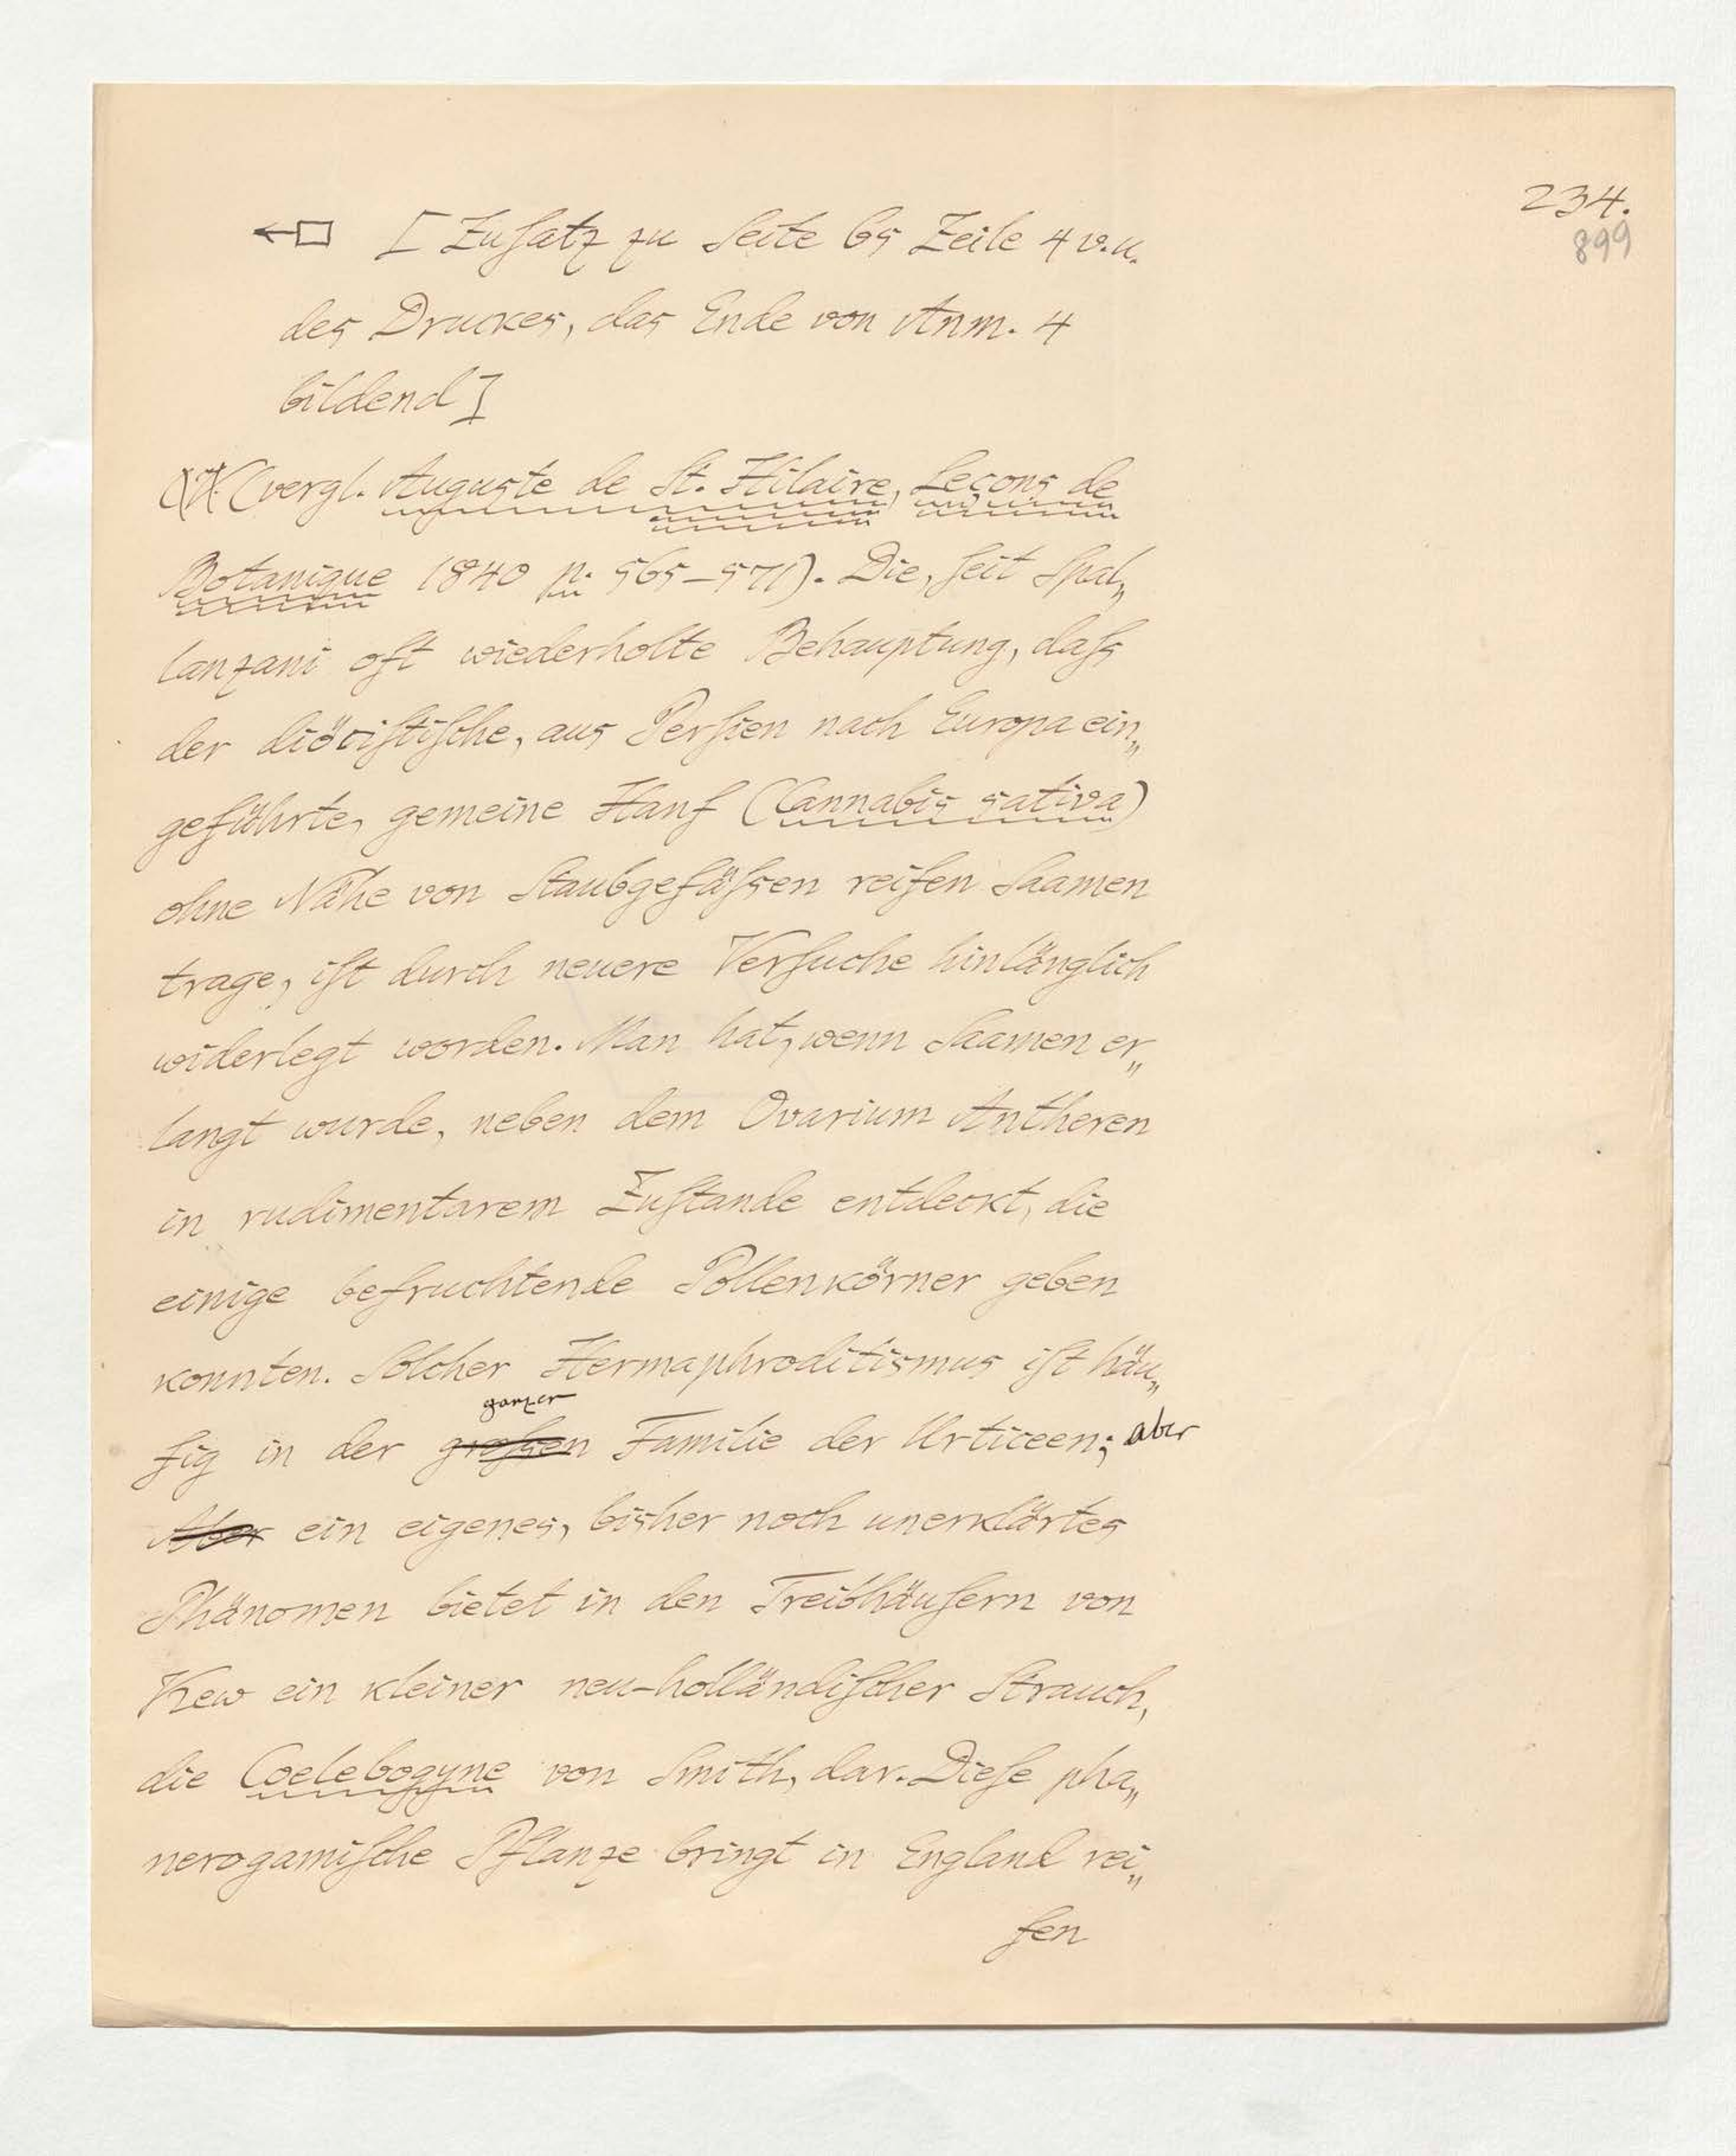 234.
899
[Zuſatz zu Seite 65 Zeile 4 v.u.
des Druckes, das Ende von Anm. 4
bildend]
(vergl. Auguste de St. Hilaire, Leçons de
Botanique 1840 p. 565–571). Die, ſeit Spal„
lanzani oft wiederholte Behauptung, daſs
der diöciſtiſche, aus Perſien nach Europa ein„
geführte, gemeine Hanf (Cannabis sativa)
ohne Nähe von Staubgefäſsen reifen Saamen
trage, iſt durch neuere Verſuche hinlänglich
widerlegt worden. Man hat, wenn Saamen er„
langt wurde, neben dem Ovarium Antheren
in rudimentarem Zuſtande entdeckt, die
einige befruchtende Pollenkörner geben
konnten. Solcher Hermaphroditismus iſt häu„
ganzen
fig in der groſsen Familie der Urticeen; aber
Aber ein eigenes, bisher noch unerklärtes
Phänomen bietet in den Treibhäuſern von
Kew ein kleiner neu-holländiſcher Strauch,
die Coelebogyne von Smith, dar. Dieſe pha„
nerogamiſche Pflanze bringt in England rei„
fen